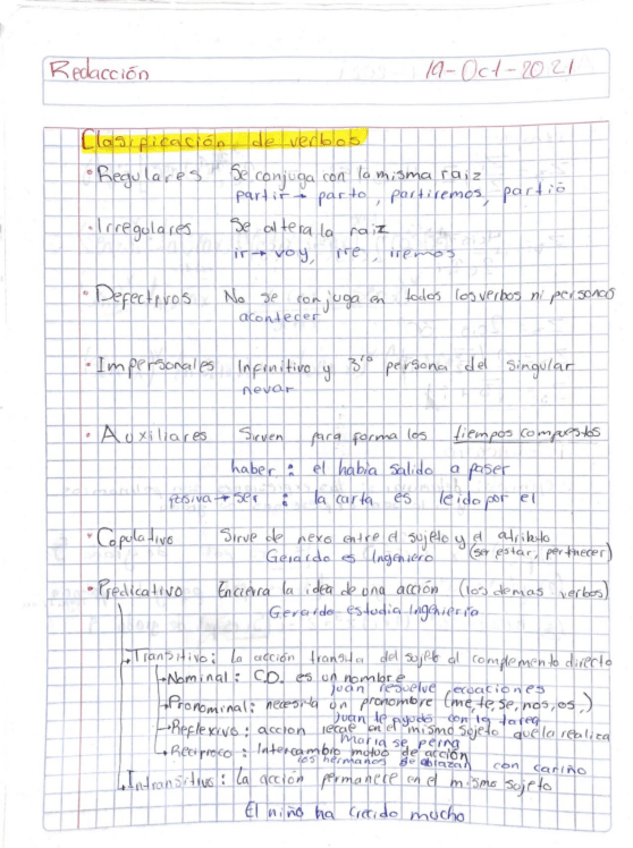 Redacción 19-Oct-2021
Clasificación de verbos
• Regulares Se conjuga con la misma raiz
partir → parto, partiremos, partió
• Irregulares Se altera la raiz
ir → voy, ire, iremos
• Defectivos No se conjuga en todos los verbos ni personas
acontecer
• Impersonales Infinitivo y 3ra persona del singular
nevar
• Auxiliares Sirven para forma los tiempos compuestos
haber : el habia salido a paser
pasiva → ser : la carta es leido por el
• Copulativo Sirve de nexo entre el sujeto y el atributo
Gerardo es Ingeniero (ser estar, pertenecer)
• Predicativo Encierra la idea de una acción (los demas verbos)
Gerardo estudia Ingenieria
→ Transitivo: la acción transita del sujeto al complemento directo
→ Nominal: C.D. es un nombre
Juan resuelve ecuaciones
→ Pronominal: necesita un pronombre (me, te, se, nos, os,)
Juan le ayudo con la tarea
→ Reflexivo: accion recae en el mismo sujeto que la realiza
Maria se peina
→ Reciproco: Intercambio mutuo de acción
los hermanos se abrazan con cariño
→ Intransitivo: la acción permanece en el mismo sujeto
El niño ha crecido mucho